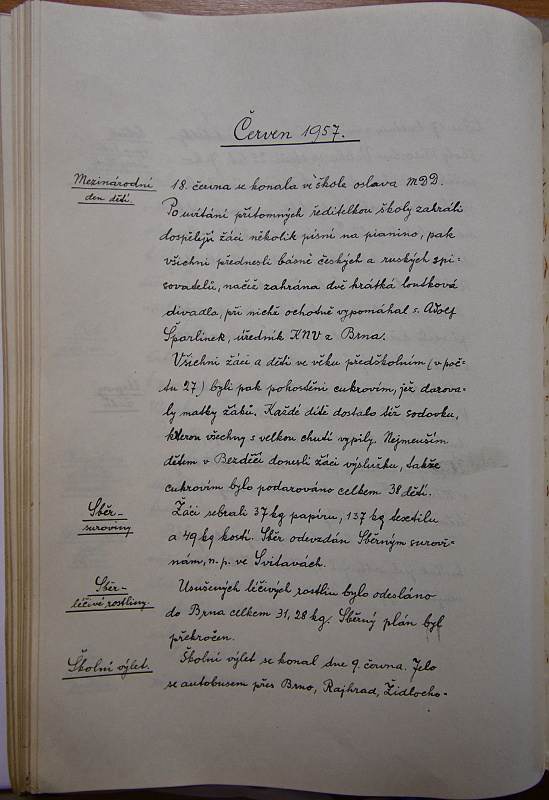 Červen 1957.
Mezinárodní
den dětí.
18. června se konala ve škole oslava MDD.
Po uvítání přítomných ředitelkou školy zahráli
dospělejší žáci několik písní na pianino, pak
všichni přednesli básně českých a ruských spi-
sovatelů, načež zahrána dvě krátká loutková
divadla, při nichž ochotně vypomáhal s. Adolf
Šparlinek, úředník KNV z Brna.
Všichni žáci a děti ve věku předškolním (v poč-
tu 27) byli pak pohoštěni cukrovím, jež darova-
ly matky žáků. Každé dítě dostalo též sodovku,
kterou všechny s velkou chutí vypily. Nejmenším
dětem v Bezděčí donesli žáci výslužku, takže
cukrovím bylo podarováno celkem 38 dětí.
Sběr-
suroviny
Žáci sebrali 37 kg papíru, 137 kg textilu
a 49 kg kostí. Sběr odevzdán Sběrným surovi-
nám, n. p. ve Svitavách.
Sběr-
léčivé rostliny.
Usušených léčivých rostlin bylo odesláno
do Brna celkem 31,28 kg. Sběrný plán byl
překročen.
Školní výlet.
Školní výlet se konal dne 9. června. Jelo
se autobusem přes Brno, Rajhrad, Židlocho-